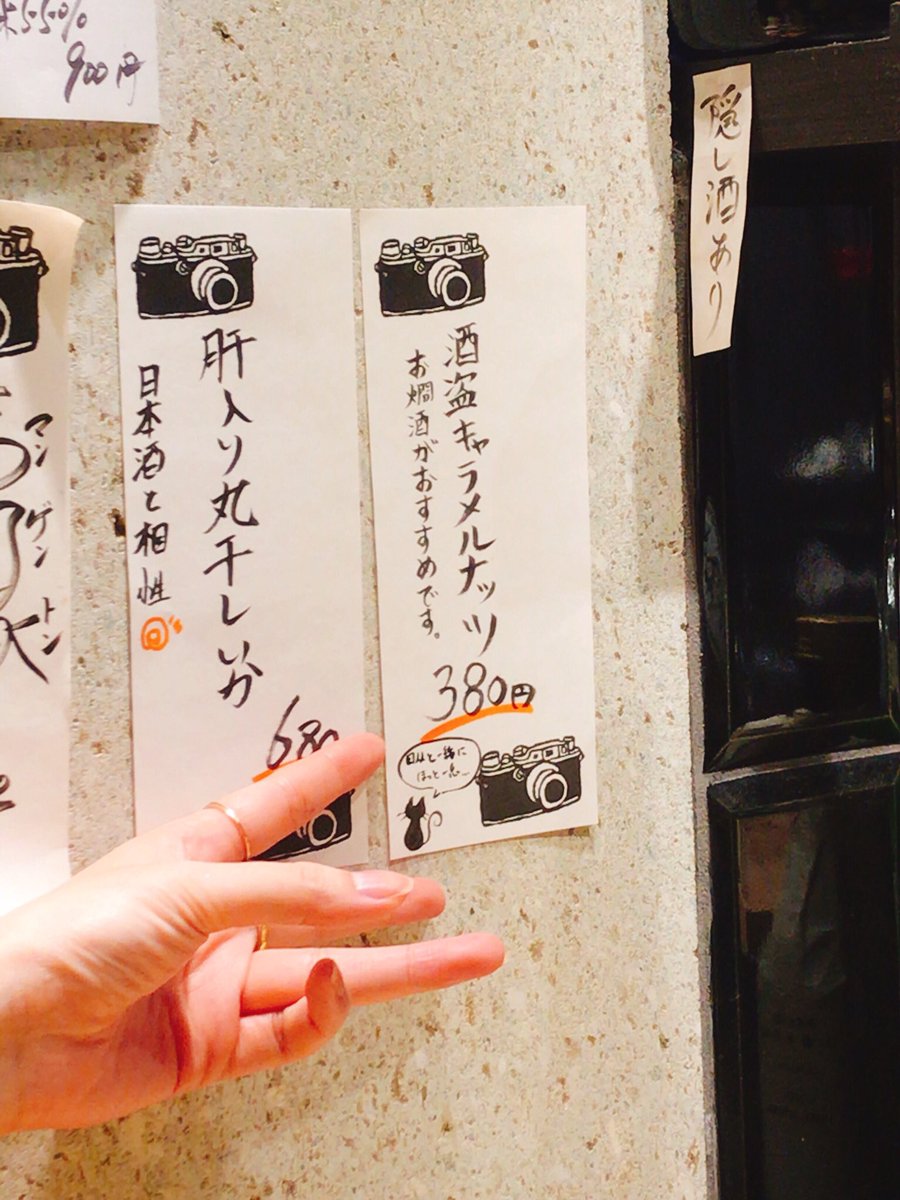 隠し酒あり
酒盗キャラメルナッツ
お燗酒がおすすめです。
380円
日本酒と一緒に
ほっと一息…
肝入り丸干しいか
日本酒と相性◎
680
マンゲントン
55%
900円